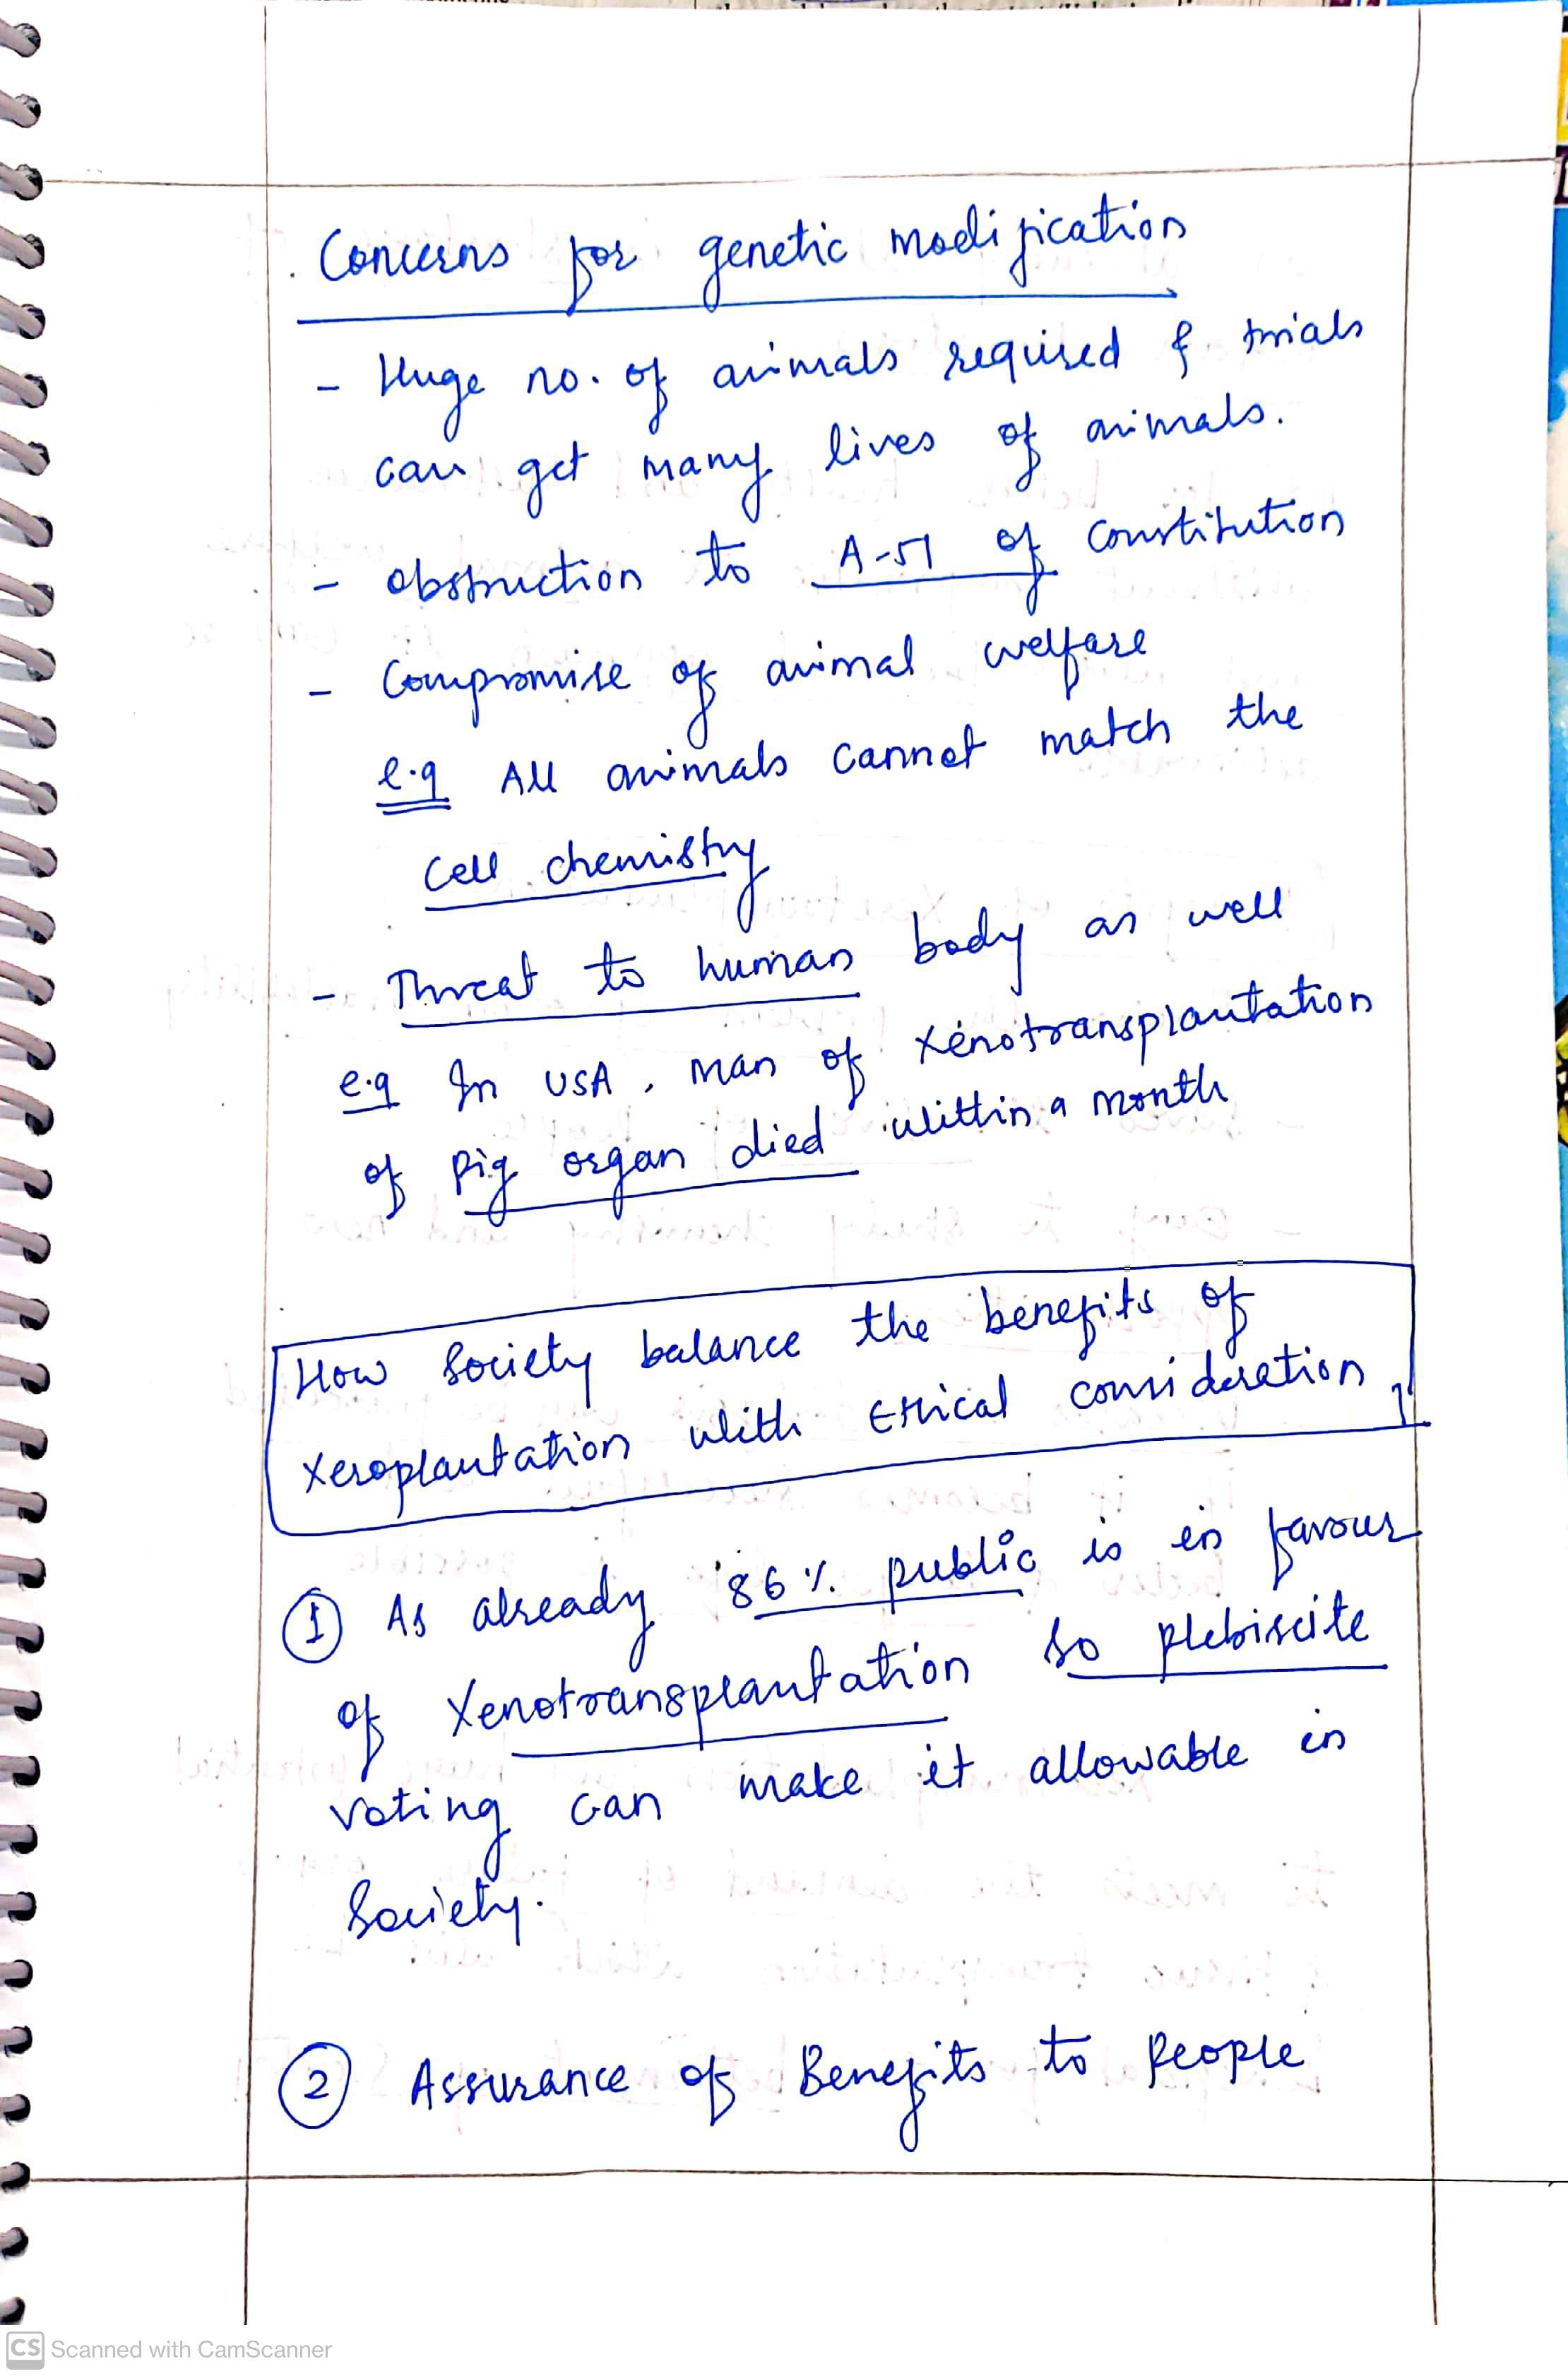 Concerns for genetic modification
- Huge no. of animals required & trials
can get many lives of animals.
- obstruction to A-51 of constitution
- Compromise of animal welfare
e.g All animals cannot match the
cell chemistry
- Threat to human body as well
e.g In USA, man of xenotransplantation
of pig organ died within a month
How society balance the benefits of
xeroplantation with Ethical consideration
① As already 86% public is in favour
of Xenotransplantation so plebiscite
voting can make it allowable in
society.
② Assurance of Benefits to people
CS Scanned with CamScanner